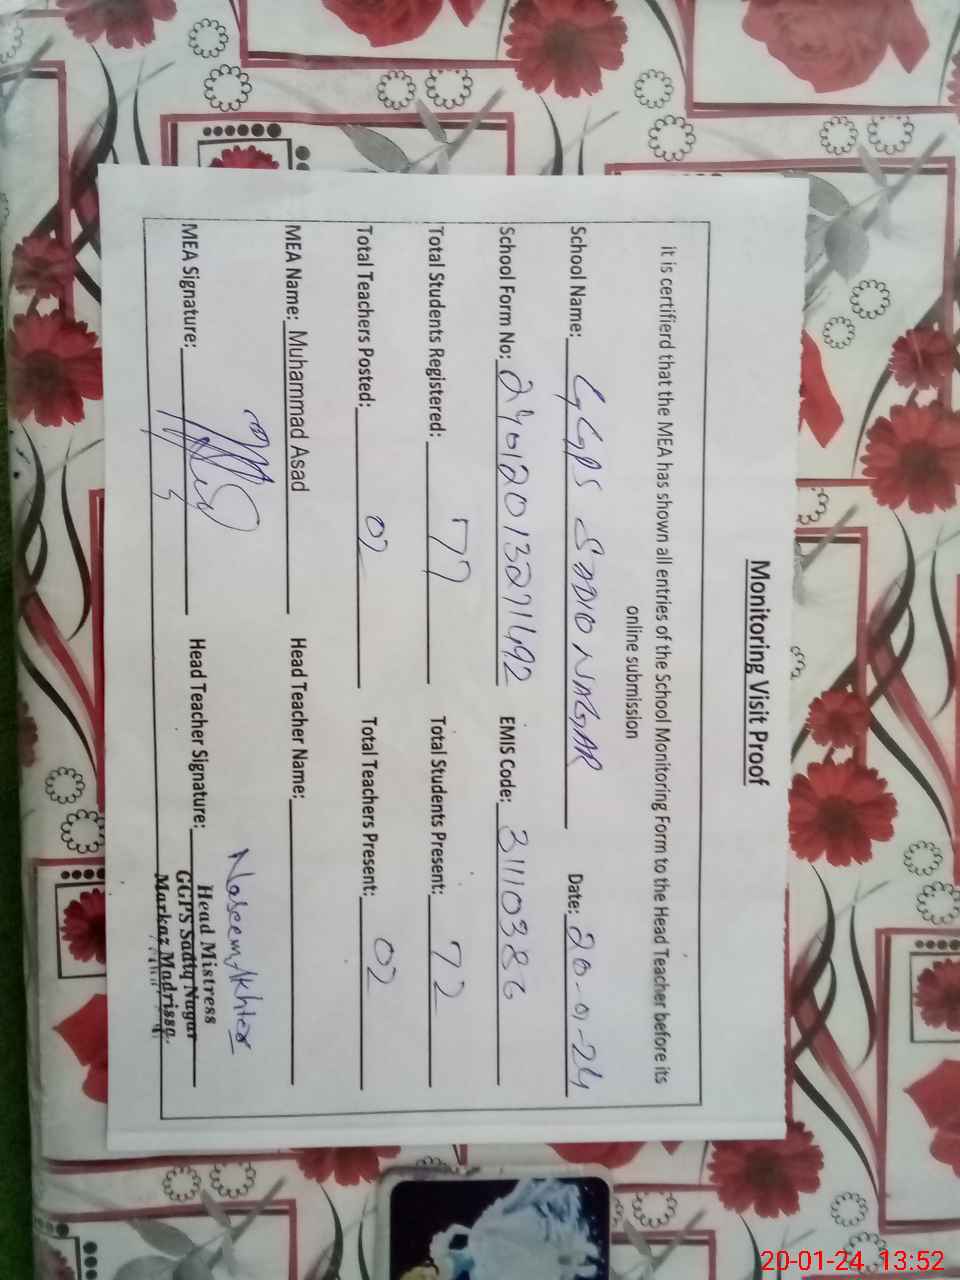 Monitoring Visit Proof
it is certifierd that the MEA has shown all entries of the School Monitoring Form to the Head Teacher before its
online submission
School Name: GGPS SADIQ NAGAR Date: 20-01-24
School Form No: 24012013271492 EMIS Code: 31110386
Total Students Registered: 77 Total Students Present: 72
Total Teachers Posted: 02 Total Teachers Present: 02
MEA Name: Muhammad Asad Head Teacher Name:
MEA Signature: Head Teacher Signature: Naseem Akhter
Head Mistress
GGPS Sadiq Nagar
Markaz Madrissa.
20-01-24 13:52